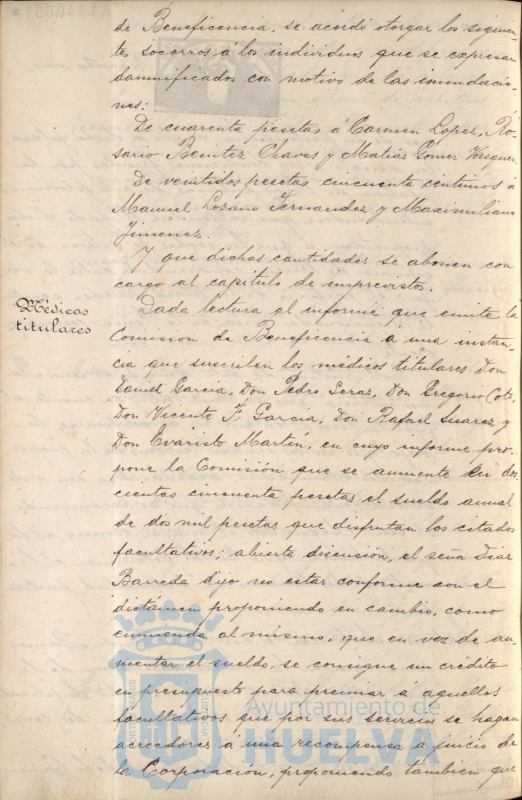 de Beneficencia, se acordó otorgar los siguien-
tes socorros á los individuos que se expresan
damnificados con motivo de las inundacio-
nes:
De cuarenta pesetas á Carmen Lopez, Ro-
sario Benitez Chaves y Matías Gomez Vasquez
De veintidos pesetas cincuenta centimos á
Manuel Lozano Fernandez y Maximiliano
Jimenez.
Y que dichas cantidades se abonen con
cargo al capítulo de imprevistos.
Médicos
titulares
Dada lectura al informe que emite la
Comision de Beneficencia á una instan-
cia que suscriben los médicos titulares Don
Daniel Garcia, Don Pedro Seras, Don Gregorio Coto,
Don Vicente F. Garcia, Don Rafael Suarez y
Don Evaristo Martin, en cuyo informe pro-
pone la Comisión que se aumente en dos
cientas cincuenta pesetas el sueldo anual
de dos mil pesetas que disfrutan los citados
facultativos; abierta discusión, el señor Diaz
Barreda dijo no estar conforme con el
dictámen proponiendo en cambio, como
enmienda al mismo, que en vez de au-
mentar el sueldo, se consigne un crédito
en presupuesto para premiar á aquellos
facultativos que por sus servicios se hagan
acreedores a una recompensa á juicio de
la Corporacion, proponiendo tambien que
Ayuntamiento de
HUELVA